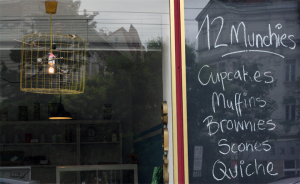 12 Munchies
Cupcakes
Muffins
Brownies
Scones
Quiche